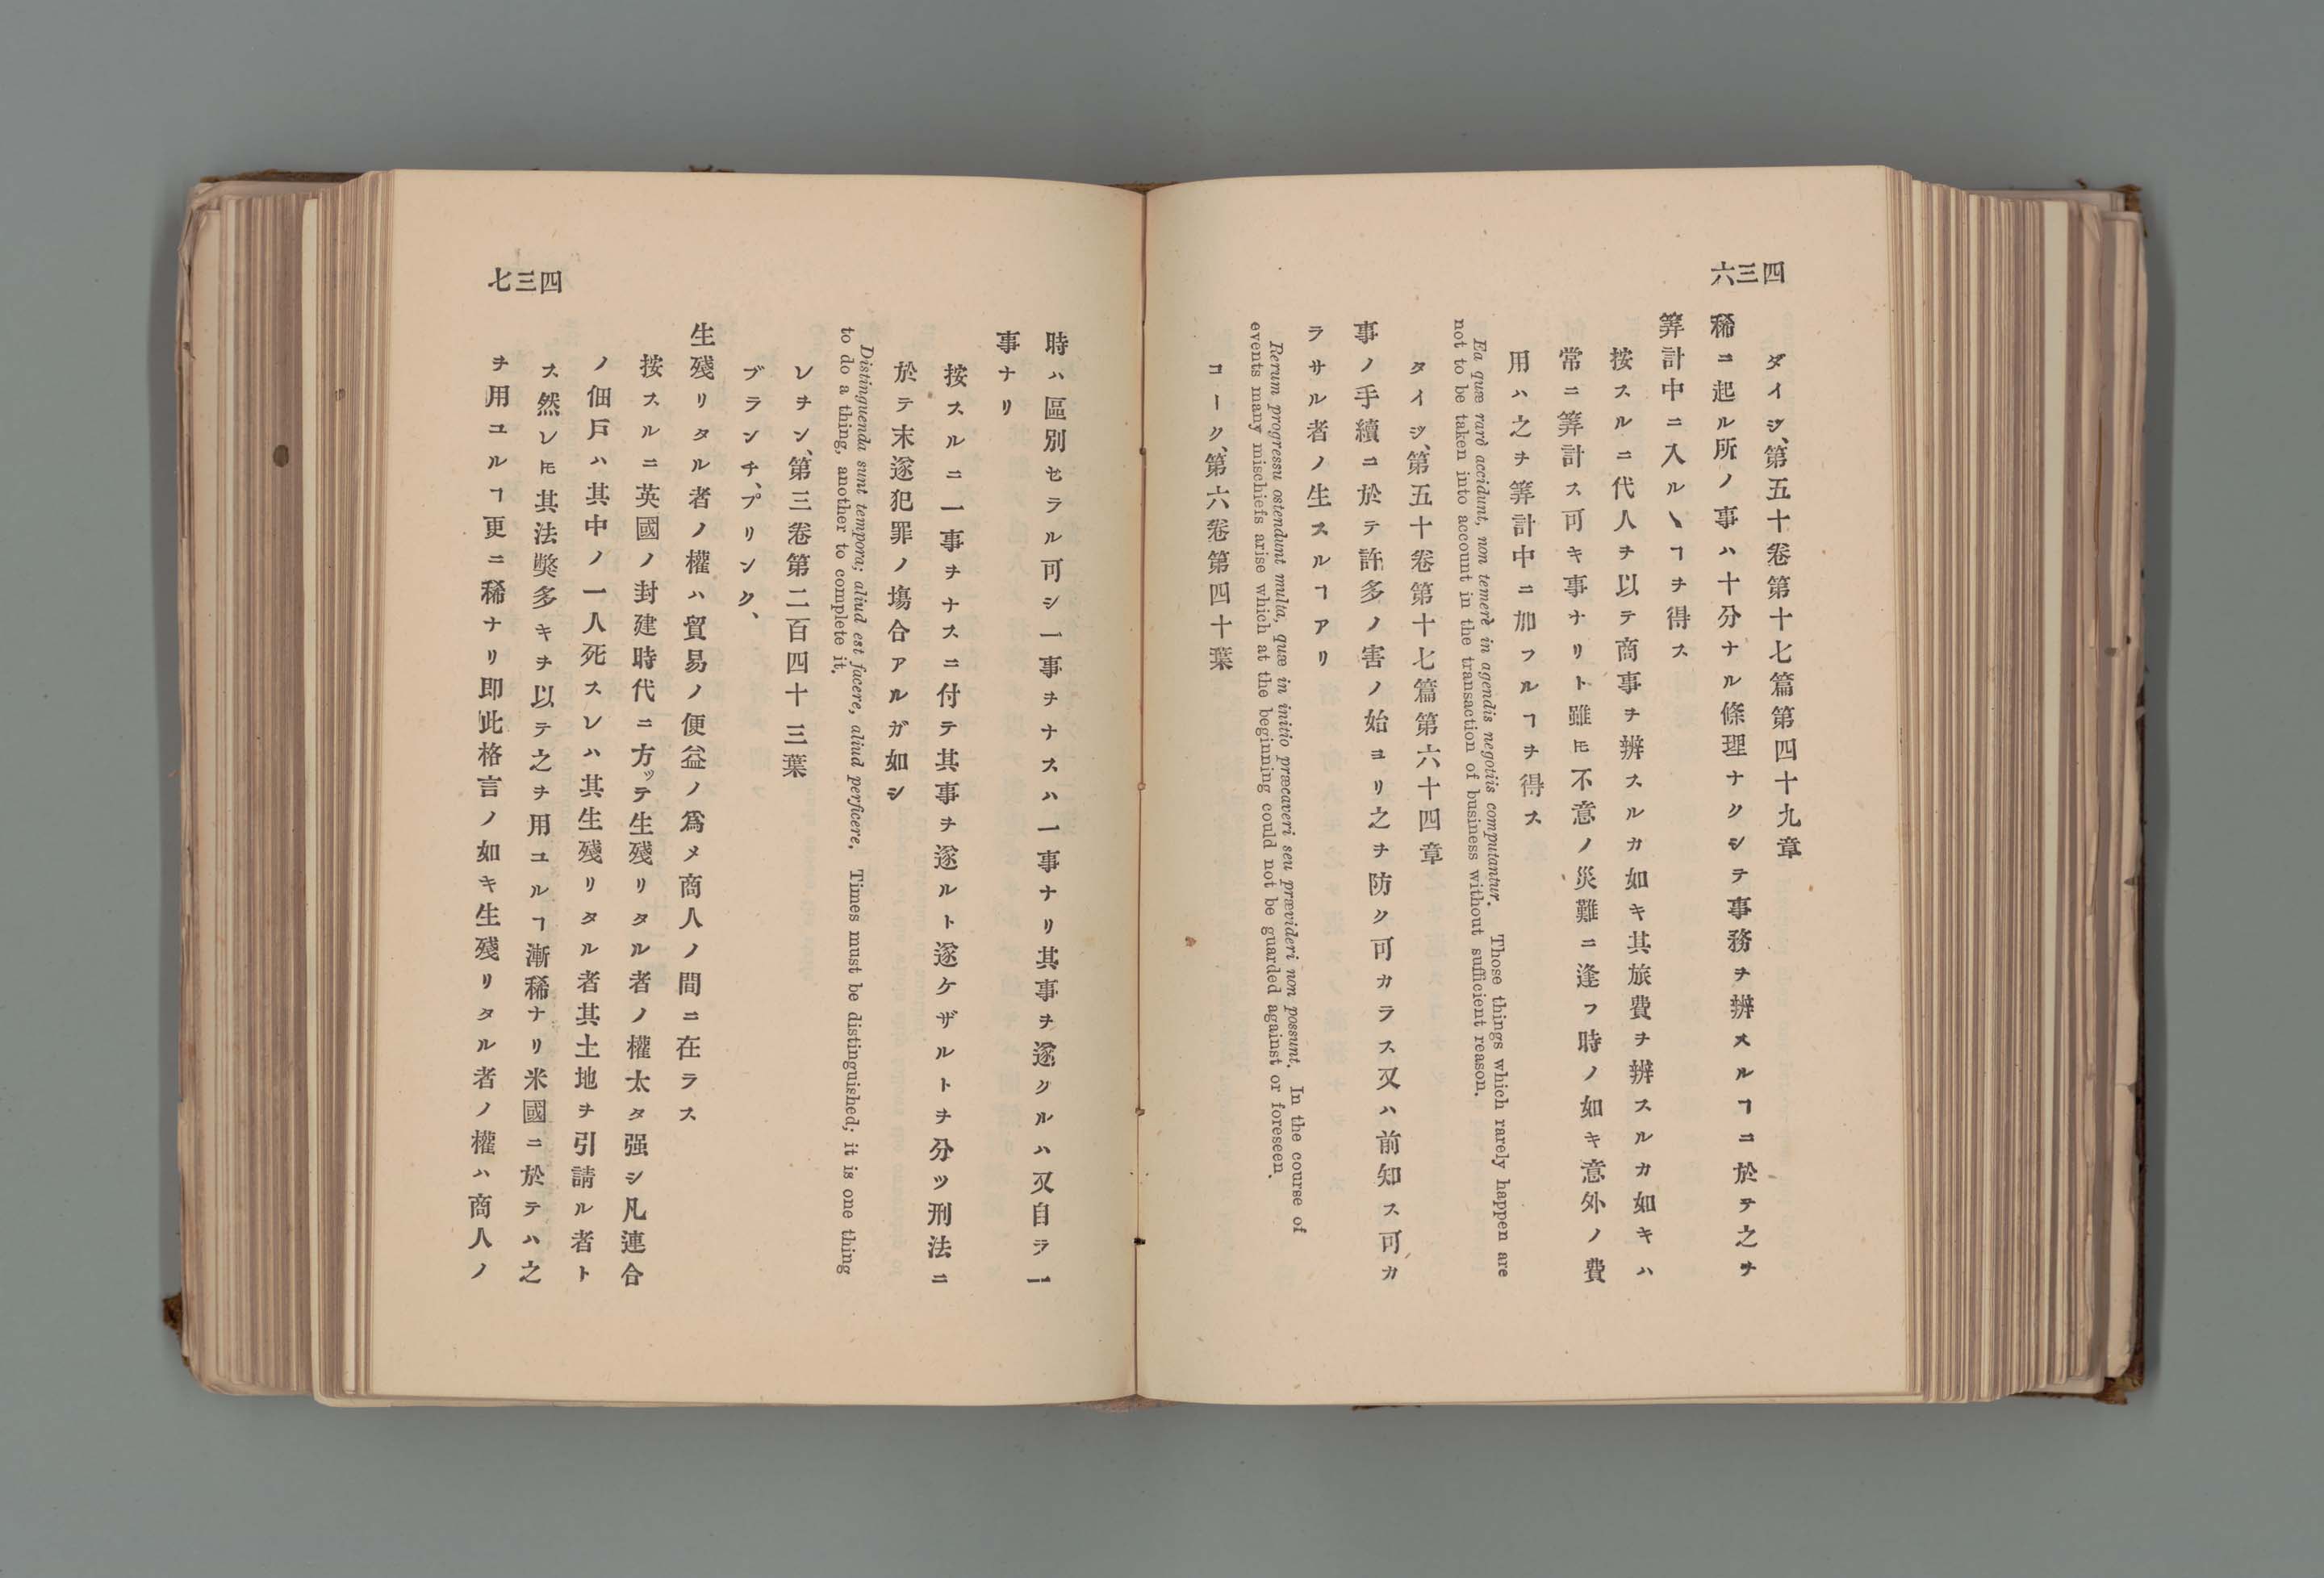 四三六
ダイジ、第五十卷第十七篇第四十九章
稀ニ起ル所ノ事ハ十分ナル條理ナクシテ事務ヲ辨スルヿニ於テ之ヲ
筭計中ニ入ルヽヿヲ得ス
按スルニ代人ヲ以テ商事ヲ辨スルカ如キ其旅費ヲ辨スルカ如キハ
常ニ筭計ス可キ事ナリト雖𪜈不意ノ災難ニ逢フ時ノ如キ意外ノ費
用ハ之ヲ筭計中ニ加フルヿヲ得ス
Ea quæ rarò accidunt, non temerè in agendis negotiis computantur. Those things which rarely happen are
not to be taken into account in the transaction of business without sufficient reason.
タイジ、第五十卷第十七篇第六十四章
事ノ手續ニ於テ許多ノ害ノ始ヨリ之ヲ防ク可カラス又ハ前知ス可カ
ラサル者ノ生スルヿアリ
Rerum progressu ostendunt multa, quæ in initio præcaveri seu prævideri non possunt. In the course of
events many mischiefs arise which at the beginning could not be guarded against or foreseen.
コーク、第六卷第四十葉
四三七
時ハ區別セラル可シ一事ヲナスハ一事ナリ其事ヲ遂クルハ又自ラ一
事ナリ
按スルニ一事ヲナスニ付テ其事ヲ遂ルト遂ケザルトヲ分ツ刑法ニ
於テ末遂犯罪ノ塲合アルガ如シ
Distinguenda sunt tempora; aliud est facere, aliud perficere. Times must be distinguished; it is one thing
to do a thing, another to complete it.
レヲン、第三卷第二百四十三葉
ブランチ、プリンク、
生殘リタル者ノ權ハ貿易ノ便益ノ爲メ商人ノ間ニ在ラス
按スルニ英國ノ封建時代ニ方ッテ生殘リタル者ノ權太タ强シ凡連合
ノ佃戸ハ其中ノ一人死スレハ其生殘リタル者其土地ヲ引請ル者ト
ス然レ𪜈其法獘多キヲ以テ之ヲ用ユルヿ漸稀ナリ米國ニ於テハ之
ヲ用ユルヿ更ニ稀ナリ即此格言ノ如キ生殘リタル者ノ權ハ商人ノ